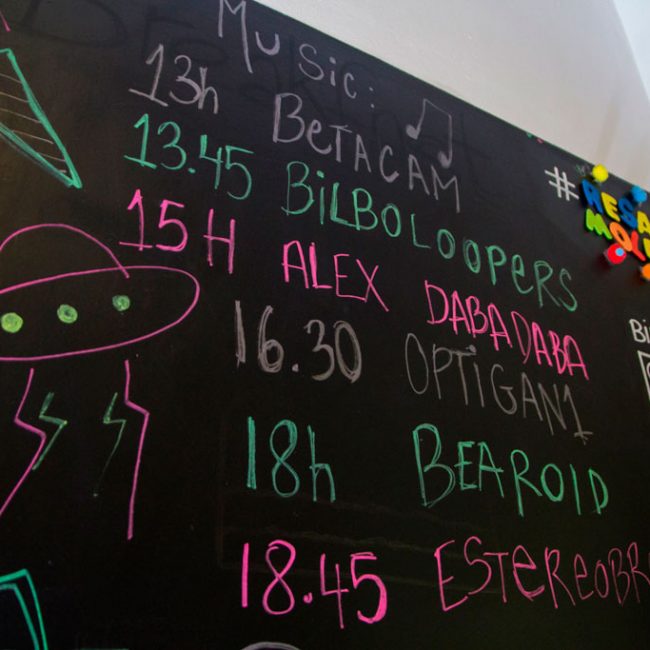 Music:
13h BETACAM
13.45 BiLBOLOOPERS
15H ALEX DABADABA
16.30 OPTiGAN1
18h BEAROID
18.45
#